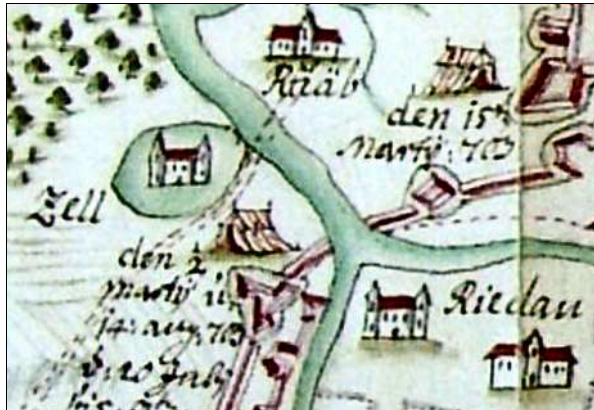 Rääb
den 15ᵗ
Martÿ: 703
Zell
den 2
Martÿ
14: aug: 703
Riedau